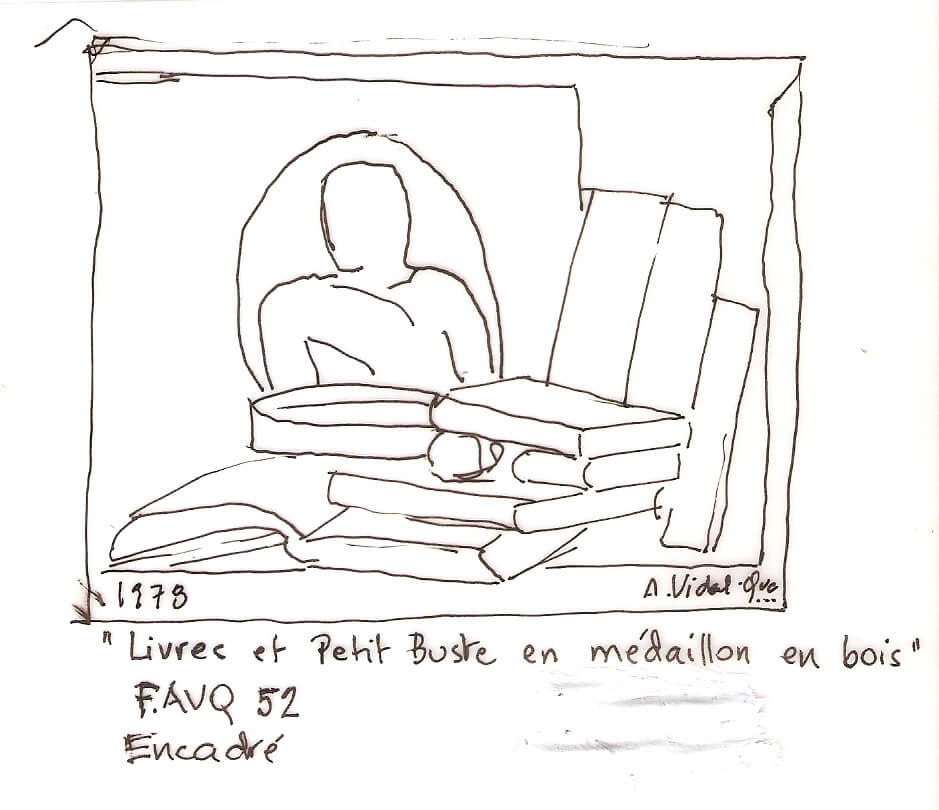 1978
A. Vidal. Que...
"Livres et Petit Buste en médaillon en bois"
F.AVQ 52
Encadré